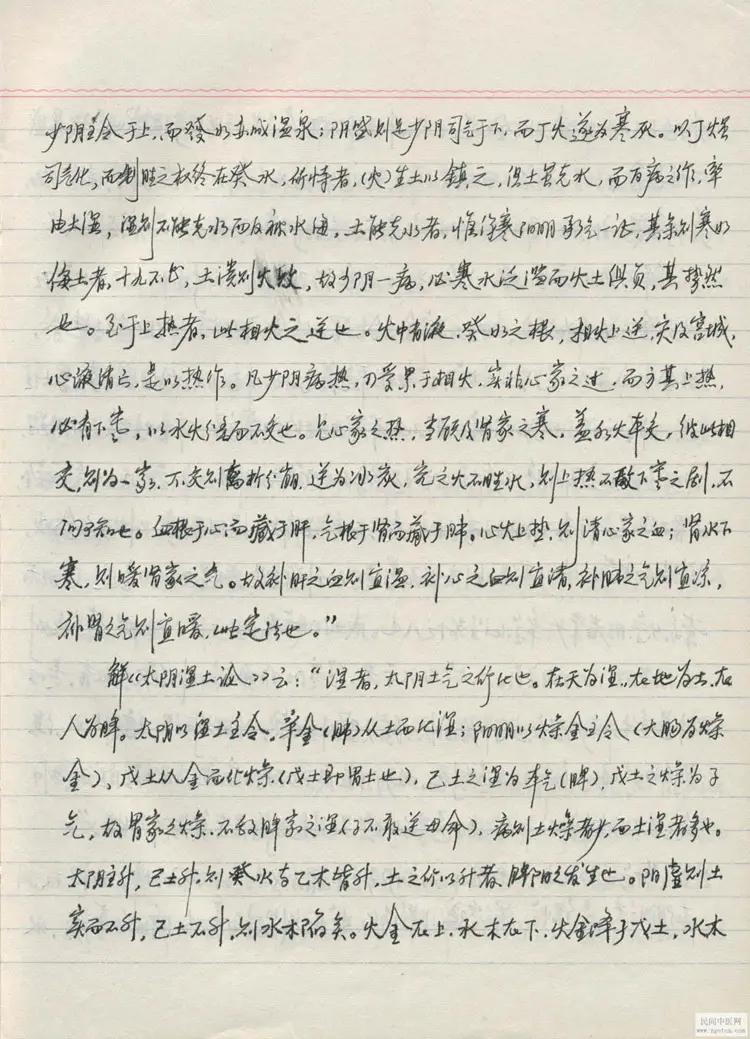 少阴主令于上，而發為赤城温泉；阴盛则是少阴司气于下，而丁火遂为寒灰。以丁火虽
司气化，而制胜之权终在癸水，所恃者，(火)生土以鎮之，但土虽克水，而百病之作，率
由土湿，湿则不能克水而反被水侮，土能克水者，惟伤寒阳明承气一证，其余则寒水
侮土者，十九不止，土溃则火败，故少阴一病，必寒水泛滥而火土俱负，其势然
也。至于上热者，此相火之逆也。火中有液，癸水之根，相火上逆，灾及宫城，
心液消亡，是以热作。凡少阴病热，乃受累于相火，实非心家之过，而方其上热，
必有下寒，以水火分离而不交也。见心家之热，当顾及肾家之寒，盖水火本交，彼此相
交，则为一家，不交则离析分崩，逆为冰炭，究之火不胜水，则上热不敌下寒之剧，不
问可知也。血根于心而藏于肝，气根于肾而藏于肺。心火上热，则清心家之血；肾水下
寒，则暖肾家之气。故补肝之血则宜温，补心之血则宜清，补肺之气则宜凉，
补肾之气则宜暖，此定法也。”
解《太阴湿土论》云：“湿者，太阴土气之所化也。在天为湿，在地为土，在
人为脾。太阴以湿土主令，辛金(肺)从土而化湿；阳明以燥金主令(大肠为燥
金)，戊土从金而化燥(戊土即胃土也)，己土之湿为本气(脾)，戊土之燥为子
气，故胃家之燥，不敌脾家之湿(子不敢逆母命)，病则土燥者少，而土湿者多也。
太阴主升，己土升，则癸水与乙木皆升，土之所以升者，脾阳之发生也。阴虚则土
实而不升，己土不升，则水木陷矣。火金在上，水木在下，火金降于戊土，水木
民间中医网